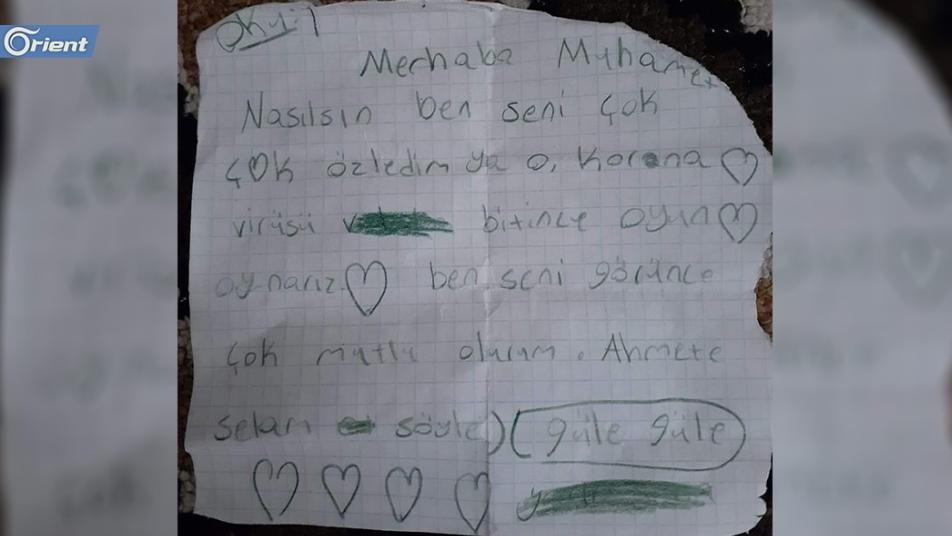 Orient
Oku!
Merhaba Muhamet
Nasılsın ben seni çok
çok özledim ya o, Korona
virüsü bitince oyun
oynarız ben seni görünce
çok mutlu olurum. Ahmete
selam söyle) (güle güle)